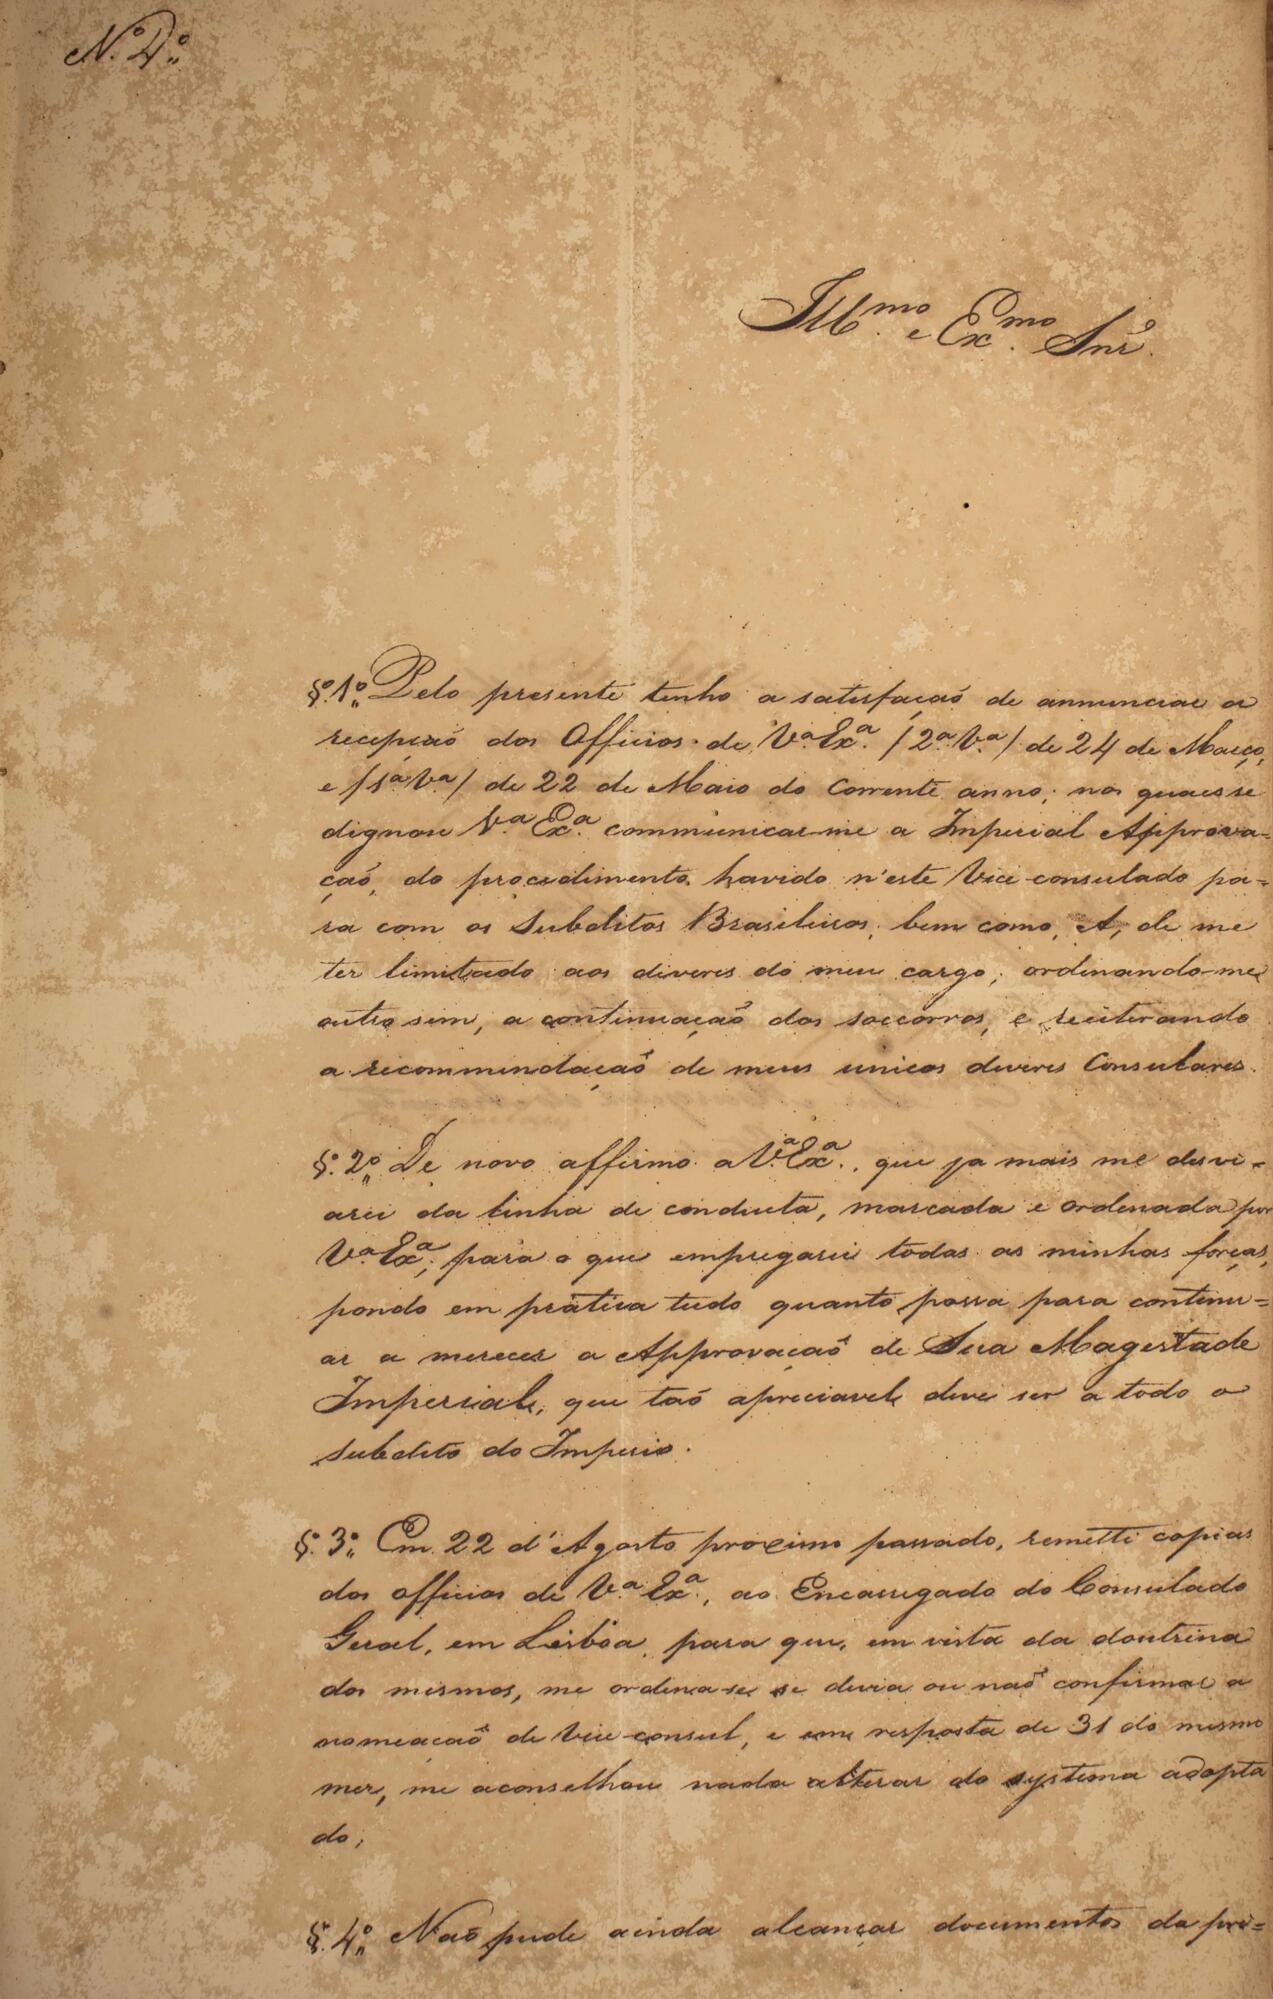 N.º 4.º
Ill.mo e Ex.mo Snr.
§.º 1.º Pelo presente tenho a satisfaçaõ de annunciar a
recepçaõ dos Officios de V.ª Ex.ª /2.ª V.ª/ de 24 de Março,
e /1.ª V.ª/ de 22 de Maio do Corrente anno; nos quaes se
dignou V.ª Ex.ª communicar-me a Imperial Approva-
çaõ, do procedimento havido n'este Vice-consulado pa=
ra com os Subditos Brasileiros; bem como, A, de me
ter limitado aos diveres do meu cargo; ordenando-me
outro sim, a continuaçaõ dos soccorros, e reiterando
a recommendaçaõ de meus unicos diveres Consulares.
§.º 2.º De novo affirmo a V.ª Ex.ª, que ja mais me desvi-
arei da linha de conducta, marcada e ordenada por
V.ª Ex.ª; para o que empregarei todas as minhas forças,
pondo em pratica tudo quanto possa para continu=
ar a merecer a Approvaçaõ de Sua Magestade
Imperial, que taõ apreciavel deve ser a todo o
subdito do Imperio.
§.º 3.º Em 22 d'Agosto proximo passado, remetti copias
dos officios de V.ª Ex.ª, ao Encarregado do Consulado
Geral, em Lisbôa, para que, em vista da doutrina
dos mesmos, me ordena-se se devia ou naõ confirmar a
nomeaçaõ de Vice-consul, e em resposta de 31 do mesmo
mez, me aconselhou nada alterar do systema adopta
do;
§.º 4.º Naõ pude ainda alcançar documentos da pri=